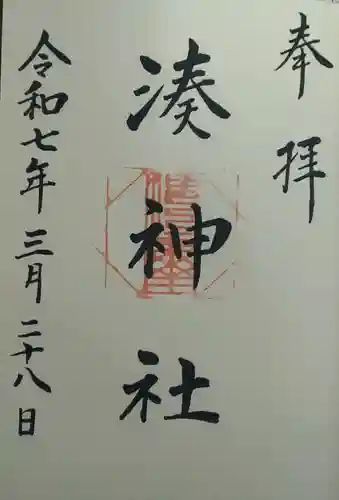 奉拝
湊神社
令和七年三月二十八日